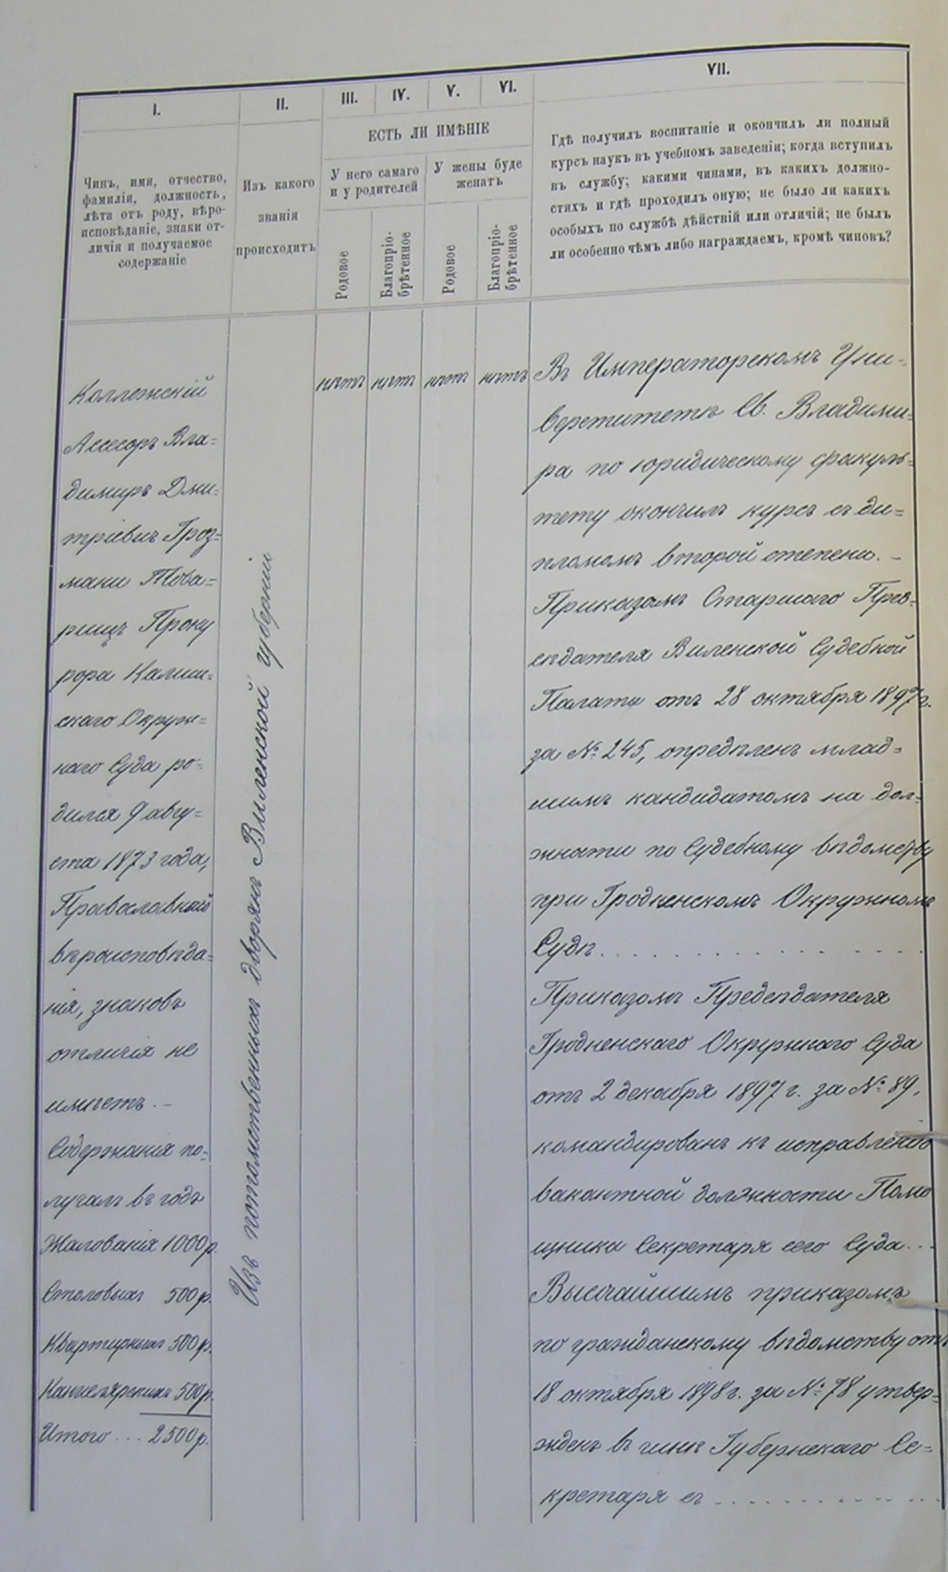 I.
II.
III.
IV.
V.
VI.
VII.
Чинъ, имя, отчество,
фамилія, должность,
лѣта отъ роду, вѣро-
исповѣданіе, знаки от-
личія и получаемое
содержаніе
Изъ какого
званія
происходитъ
ЕСТЬ ЛИ ИМѢНІЕ
У него самаго
и у родителей
У жены буде
женатъ
Родовое
Благопріо-
брѣтенное
Родовое
Благопріо-
брѣтенное
Гдѣ получилъ воспитаніе и окончилъ ли полный
курсъ наукъ въ учебномъ заведеніи; когда вступилъ
въ службу; какими чинами, въ какихъ должно-
стяхъ и гдѣ проходилъ оную; не было ли какихъ
особыхъ по службѣ дѣйствій или отличій; не былъ
ли особенно чѣмъ либо награждаемъ, кромѣ чиновъ?
Коллежскій
Ассесоръ Вла=
димиръ Дми=
тріевичъ Гроз=
мани Това=
рищъ Проку
рора Калиш=
скаго Окруж=
наго Суда ро=
дился 9 авгу=
ста 1873 года,
Православнаго
вѣроисповѣда=
нія, знаковъ
отличія не
имѣетъ. –
Содержанія по=
лучалъ въ годъ
Жалованія 1000 р.
Столовыхъ 500 р.
Квартирныхъ 500 р.
Канцелярскихъ 500 р.
Итого ... 2500 р.
Изъ потомственныхъ дворянъ Виленской губерніи
нѣтъ
нѣтъ
нѣтъ
нѣтъ
Въ Императорскомъ Уни=
верситетѣ Св. Владими=
ра по юридическому факуль=
тету окончилъ курсъ съ ди=
пломомъ второй степени. –
Приказомъ Старшаго Пред=
сѣдателя Виленской Судебной
Палаты отъ 28 октября 1897 г.
за № 245, опредѣленъ млад=
шимъ кандидатомъ на дол=
жности по Судебному вѣдомству
при Гродненскомъ Окружномъ
Судѣ . . . . . . . . . .
Приказомъ Предсѣдателя
Гродненскаго Окружнаго Суда
отъ 2 декабря 1897 г. за № 89,
командированъ къ исправленію
вакантной должности Помо
щника Секретаря сего Суда...
Высочайшимъ приказомъ
по гражданскому вѣдомству отъ
18 октября 1898 г. за № 78 утвер=
жденъ въ чинѣ Губернскаго Се=
кретаря съ . . . . . . . . . .